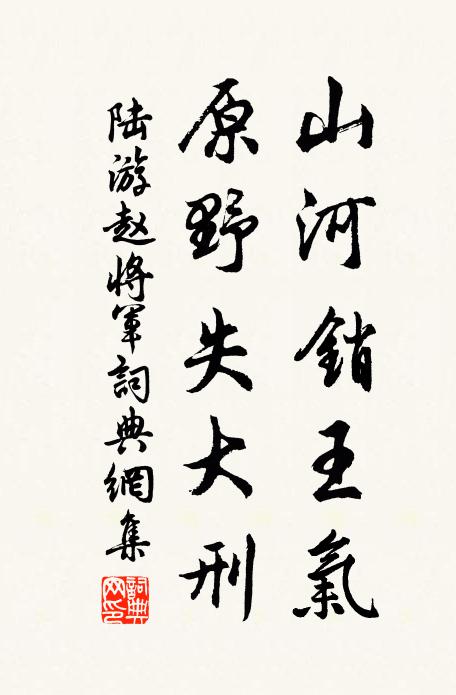 山河銷王氣
原野失大刑
陆游赵将軍詞典網集
詞典网印